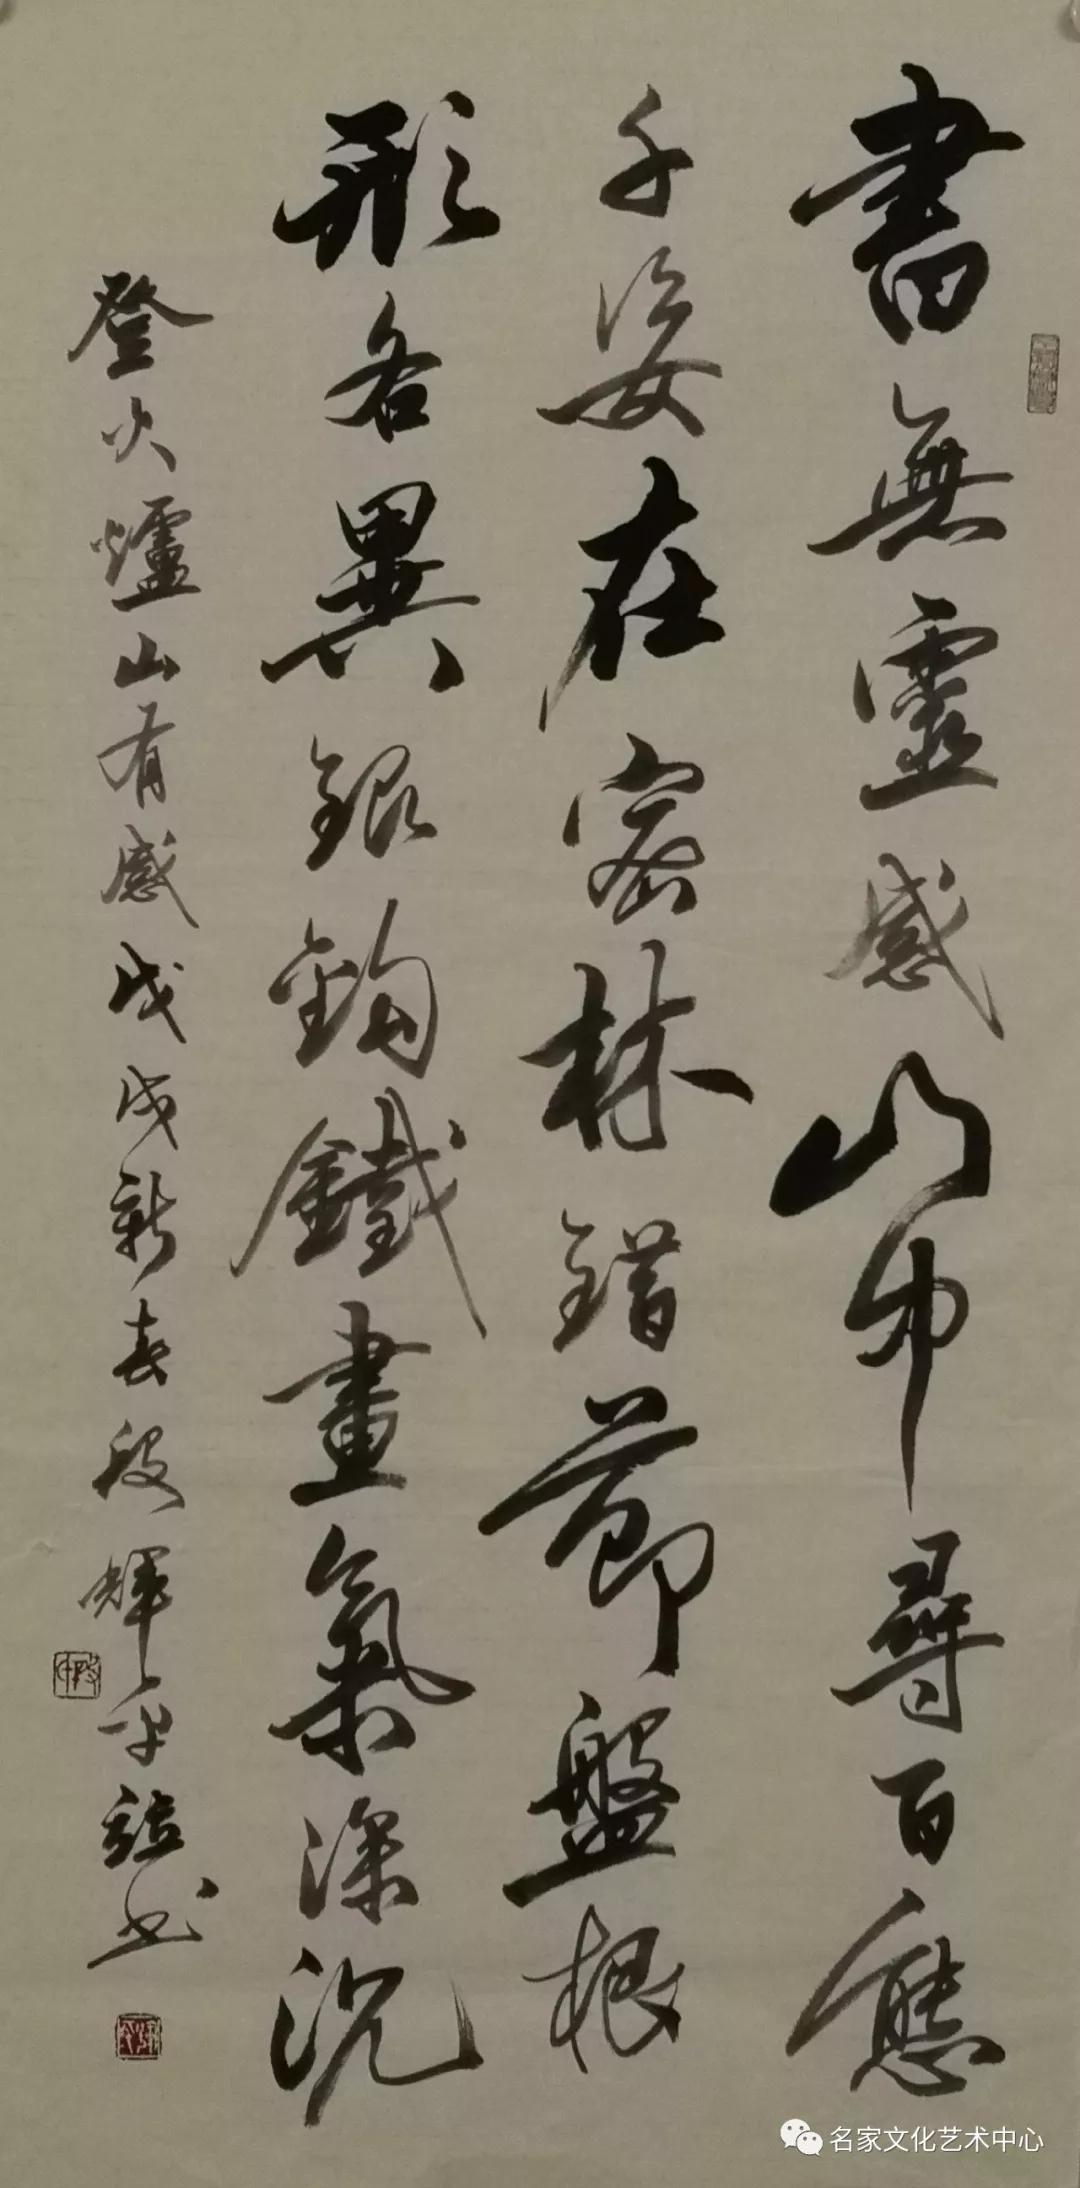 書無靈感山中尋百態
千姿在密林錯節盤根
形各異銀鉤鐵畫氣深沉
登火爐山有感戊戌新春段輝平詩書
名家文化艺术中心